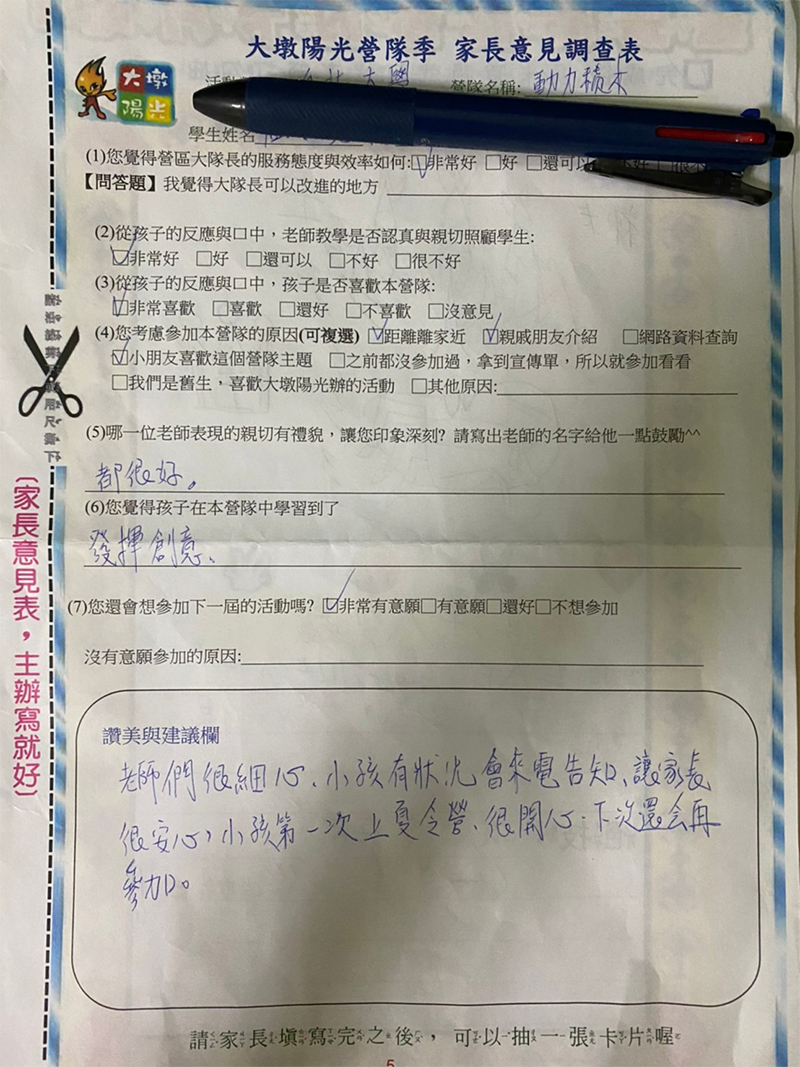 大墩陽光營隊季 家長意見調查表
大墩
陽光
營隊名稱: 動力積木
學生姓名
(1)您覺得營區大隊長的服務態度與效率如何:☑非常好 □好 □還可以
【問答題】我覺得大隊長可以改進的地方
(2)從孩子的反應與口中，老師教學是否認真與親切照顧學生:
☑非常好 □好 □還可以 □不好 □很不好
(3)從孩子的反應與口中，孩子是否喜歡本營隊:
☑非常喜歡 □喜歡 □還好 □不喜歡 □沒意見
(4)您考慮參加本營隊的原因(可複選) ☑距離離家近 ☑親戚朋友介紹 □網路資料查詢
☑小朋友喜歡這個營隊主題 □之前都沒參加過，拿到宣傳單，所以就參加看看
□我們是舊生，喜歡大墩陽光辦的活動 □其他原因:
(5)哪一位老師表現的親切有禮貌，讓您印象深刻? 請寫出老師的名字給他一點鼓勵^^
都很好。
(6)您覺得孩子在本營隊中學習到了
發揮創意、
(7)您還會想參加下一屆的活動嗎? ☑非常有意願□有意願□還好□不想參加
沒有意願參加的原因:
讚美與建議欄
老師們很細心、小孩有狀況會來電告知、讓家長
很安心，小孩第一次上夏令營、很開心、下次還会再
參加。
請家長填寫完之後，可以抽一張卡片喔
5
〔家長意見表，主辦寫就好〕